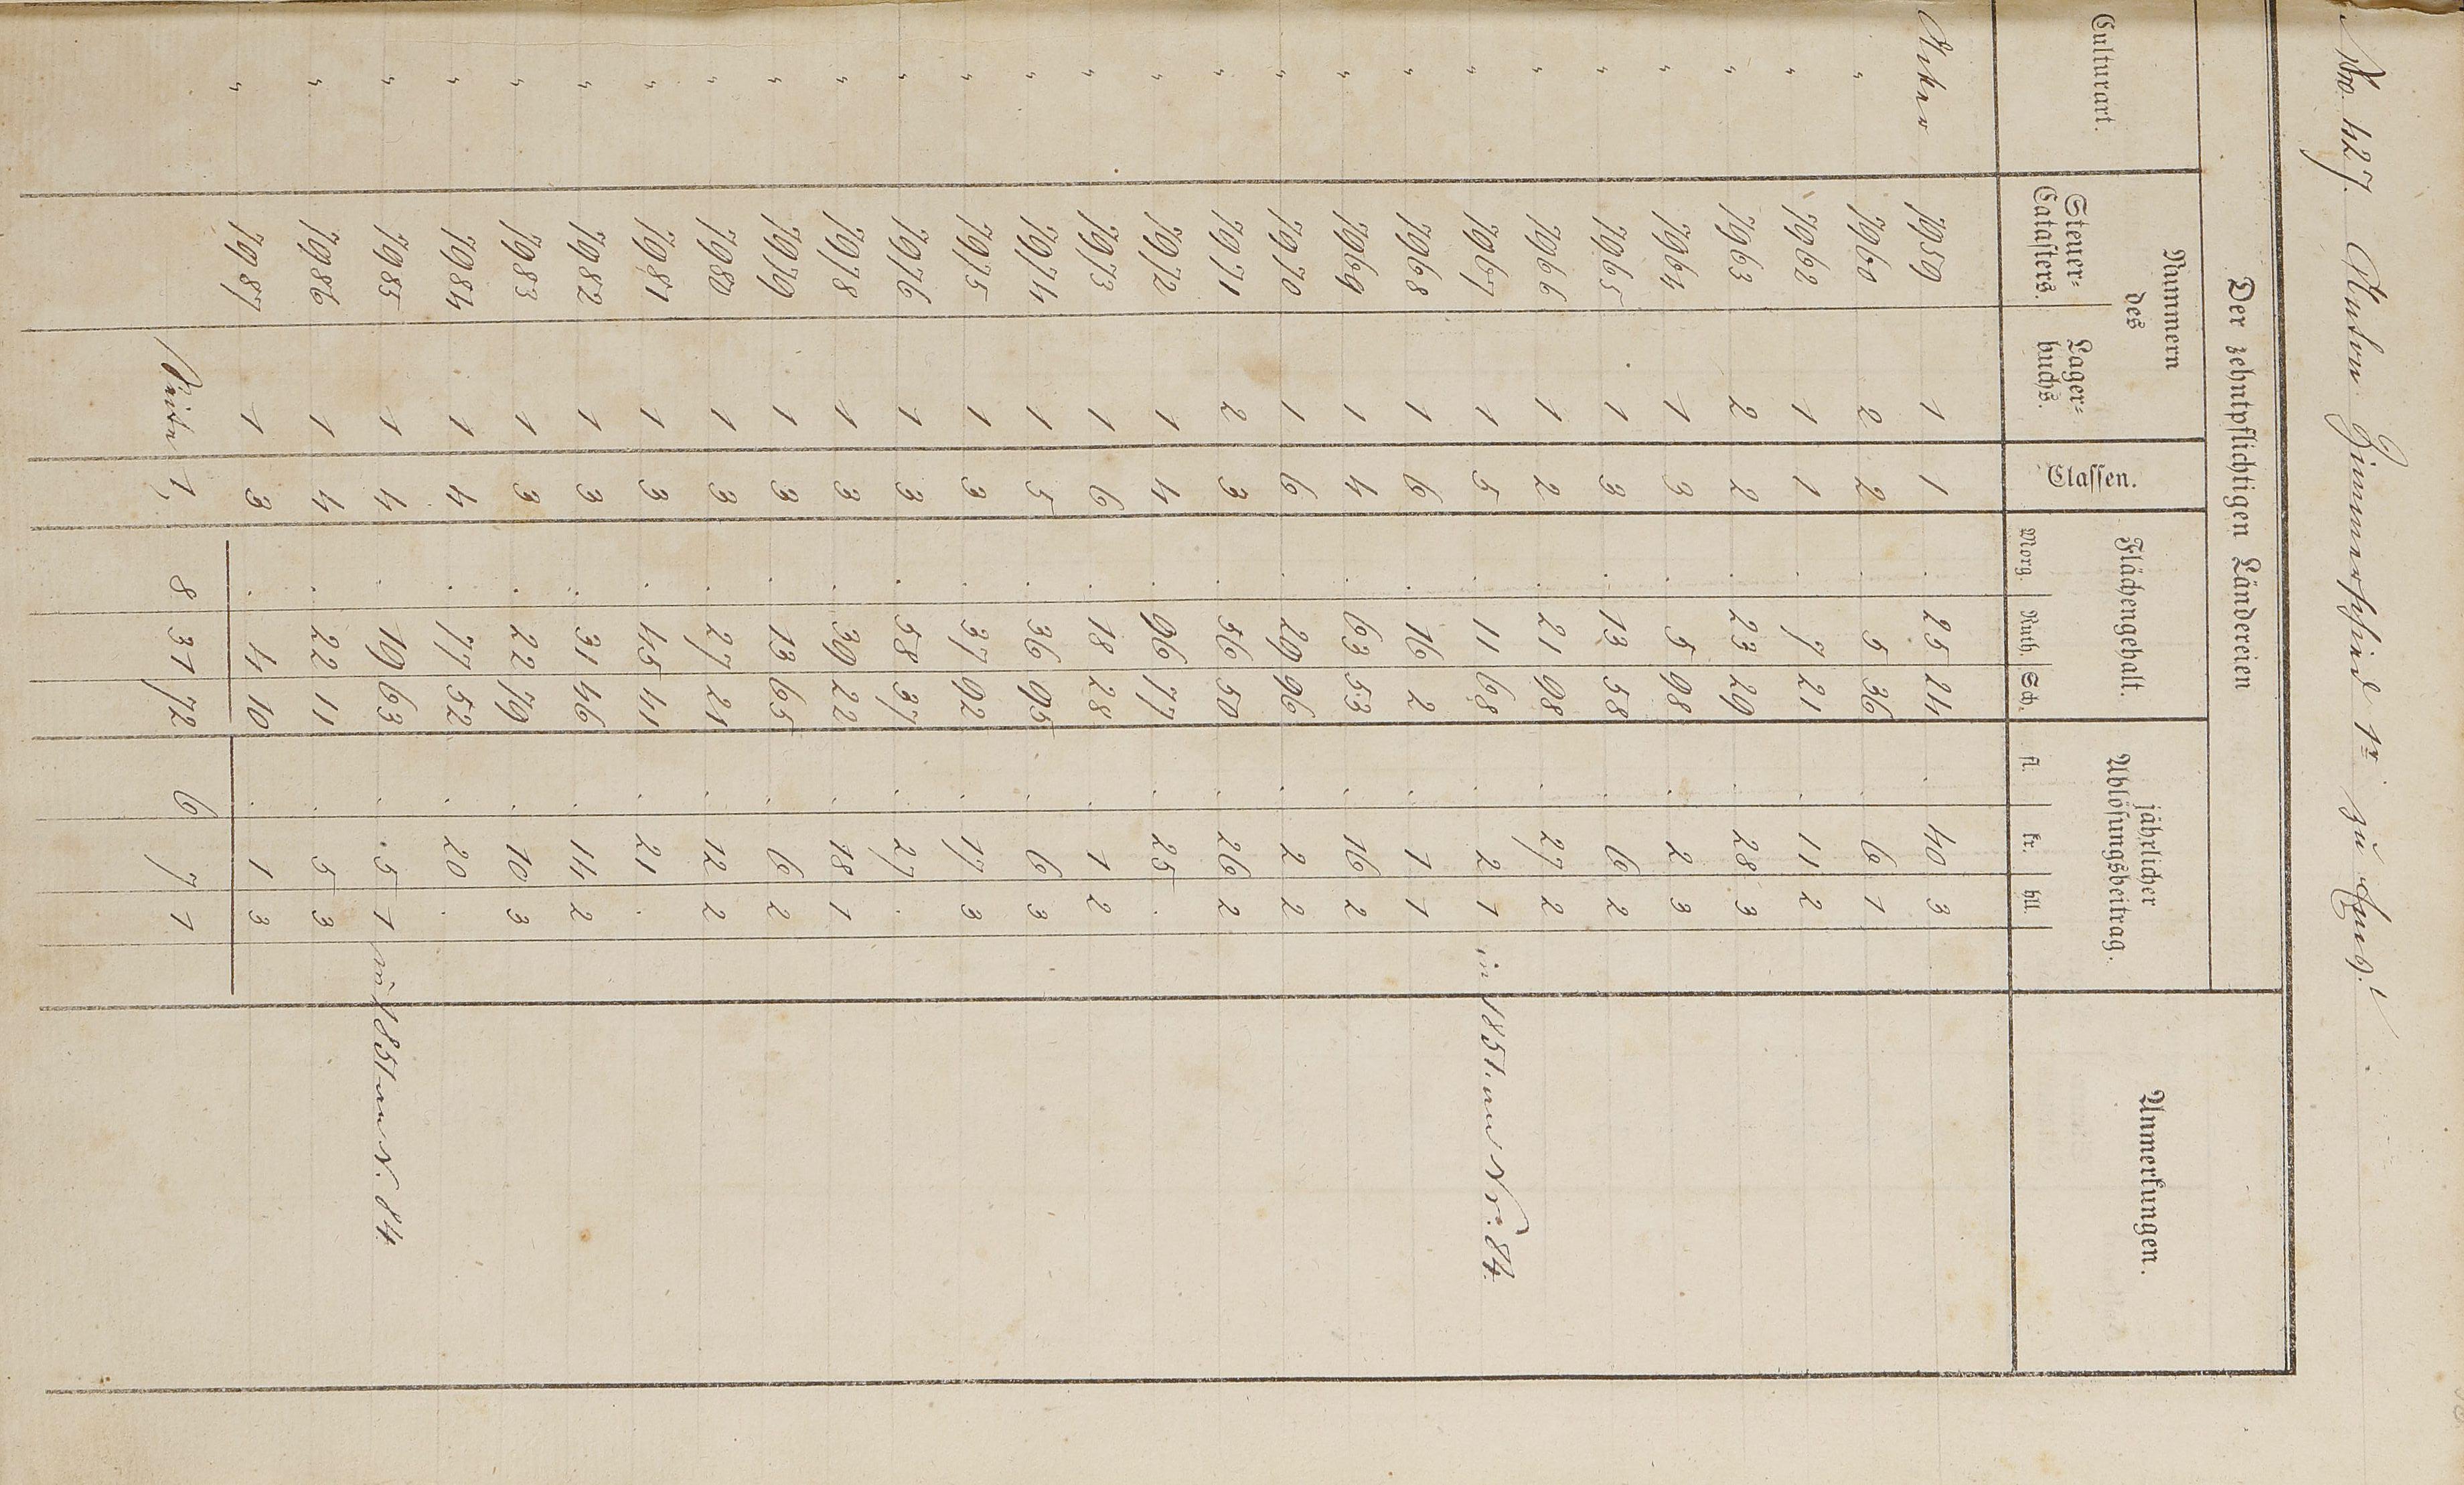 No. 427. Anton Zimmerschied 1r zu
Der zehntpflichtigen Ländereien
Culturart. Nummern des Steuer=Catasters. Lager=buchs. Classen. Flächengehalt. Morg. Ruth. Sch. jährlicher Ablösungsbeitrag. fl. kr. hll. Anmerkungen.
Acker 7959 1 1 . 25 24 . 40 3
" 7960 2 2 . 5 36 . 6 1
" 7962 1 1 . 7 21 . 11 2
" 7963 2 2 . 23 29 . 28 3
" 7964 1 3 . 5 98 . 2 3
" 7965 1 3 . 13 58 . 6 2
" 7966 1 2 . 21 98 . 27 2
" 7967 1 5 . 11 68 . 2 1 in 1851. an No. 84.
" 7968 1 6 . 16 2 . 1 1
" 7969 1 4 . 63 53 . 16 2
" 7970 1 6 . 29 96 . 2 2
" 7971 2 3 . 56 50 . 26 2
" 7972 1 4 . 96 77 . 25 .
" 7973 1 6 . 18 28 . 1 2
" 7974 1 5 . 36 95 . 6 3
" 7975 1 3 . 37 92 . 17 3
" 7976 1 3 . 58 37 . 27 .
" 7978 1 3 . 39 22 . 18 1
" 7979 1 3 . 13 65 . 6 2
" 7980 1 3 . 27 21 . 12 2
" 7981 1 3 . 45 41 . 21 .
" 7982 1 3 . 31 46 . 14 2
" 7983 1 3 . 22 79 . 10 3
" 7984 1 4 . 77 52 . 20 .
" 7985 1 4 . 19 63 . 5 1 in 1851 an N. 84.
" 7986 1 4 . 22 11 . 5 3
" 7987 1 3 . 4 10 . 1 3
Seite 1, 8 31 72 6 7 1